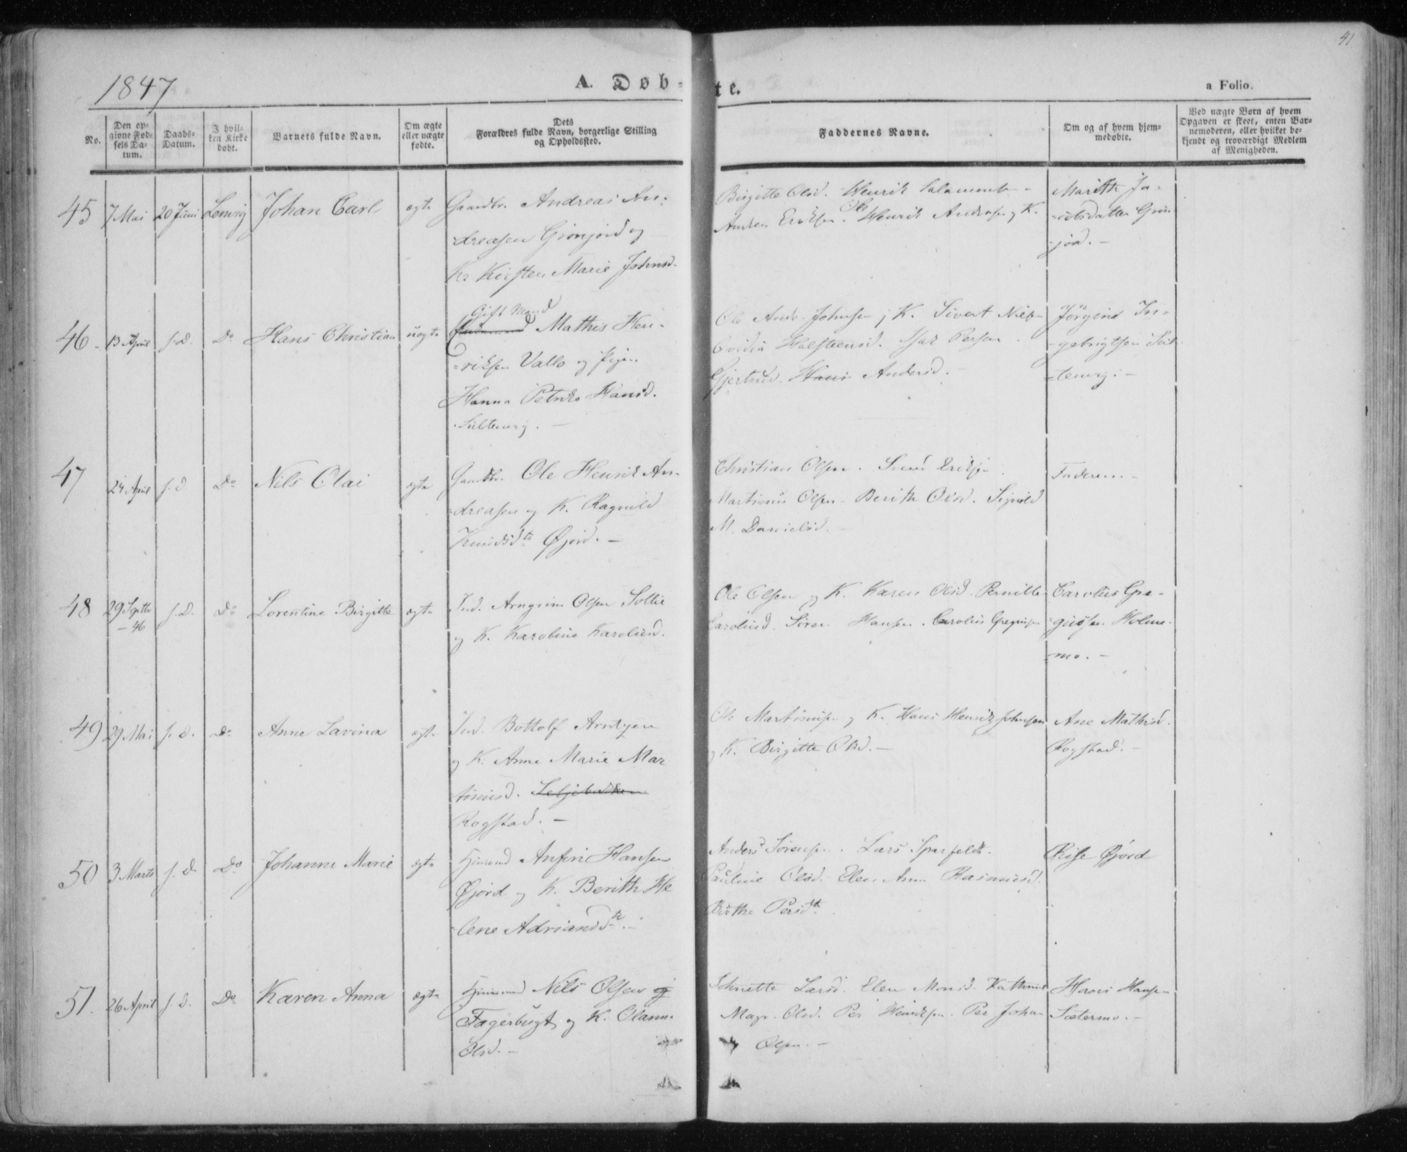 1847
A. Døbte.
a Folio.
41
No.
Den op-
givne Fød-
sels Da-
tum.
Daabs-
Datum.
I hvil-
ken Kirke
døbt.
Barnets fulde Navn.
Om ægte
eller uægte
fødte.
Dets
Forældres fulde Navn, borgerlige Stilling
og Opholdssted.
Faddernes Navne.
Om og af hvem hjem-
medøbte.
Ved uægte Børn af hvem
Opgaven er skeet, enten Bar-
nemoderen, eller hvilket be-
kjendt og troværdigt Medlem
af Menigheden.
45 7 Mai 20 Juni Lenvig Johan Carl ægte Gaardbr. Andreas An-
dreasen Grønjord og
K. Kirsten Marie Johnsd.
Birgitte Olsd. Henrik
Anders Eriksen. Henrik Andreas. og K.
Marith Ja-
Grøn-
jord. -
46 13 April s. D. Do Hans Christian uægte Gift Mand
Mathis Hen-
riksen Valto og Pigen
Hanna Petrike Hansd.
Ole Andr. Johnsen og K. Sivert Niels.
Halsteensd. Persen
Gjertrud. Hans Andersd. -
Jørgine In-
gebrigtsen
47 24 April s. d Do Nils Olai ægte Gaardbr. Ole Henrik An-
dreasen og K. Ragnild
Knudsdtr Øjord. -
Christian Olsen. Svend Eriksen.
Martinus Olsen. Berith Olsd. Signild
M. Danielsd. -
Faderen -
48 29 Septbr
- 46 s. D. Do Lorentine Birgitte ægte Ind. Arngrim Olsen Sollie
og K. Karoline Karolisd.
Ole Olsen og K. Karen Olsd. Pernille
Carolisd. Søren Hansen. Carolus Gregusen
Carolus Gre-
gusen Holme-
mo. -
49 29 Mai s. D. Do Anne Lavina ægte Ind. Bottolf Arntzen
og K. Anne Marie Mar-
tinusd.
Rogstad. -
Ole Martinusen og K. Hans Henrik Johnsen
og K. Birgitte Olsd. -
Ane Mathisd.
Rogstad. -
50 3 Marts s. d. Do Johanne Marie ægte Huusmd Anfin Hansen
Øjord og K. Berith He-
lene Adriansdtr. -
Anders Sørensen. Lars Sparfeldt.
Pauline Olsd. Elen Anna Rasmusd.
Birthe Persdtr
Øjord
51. 26 April s. D. Do Karen Anna ægte Huusmd Nils Olsen og
Fagerbugt og K. Olianna
Olsd. -
Larsd. Elen Monsd. Kathrine
Magr. Olsd. Per Henriksen. Per Johan
Olsen. -
Hans Hansen
Sætermo. -